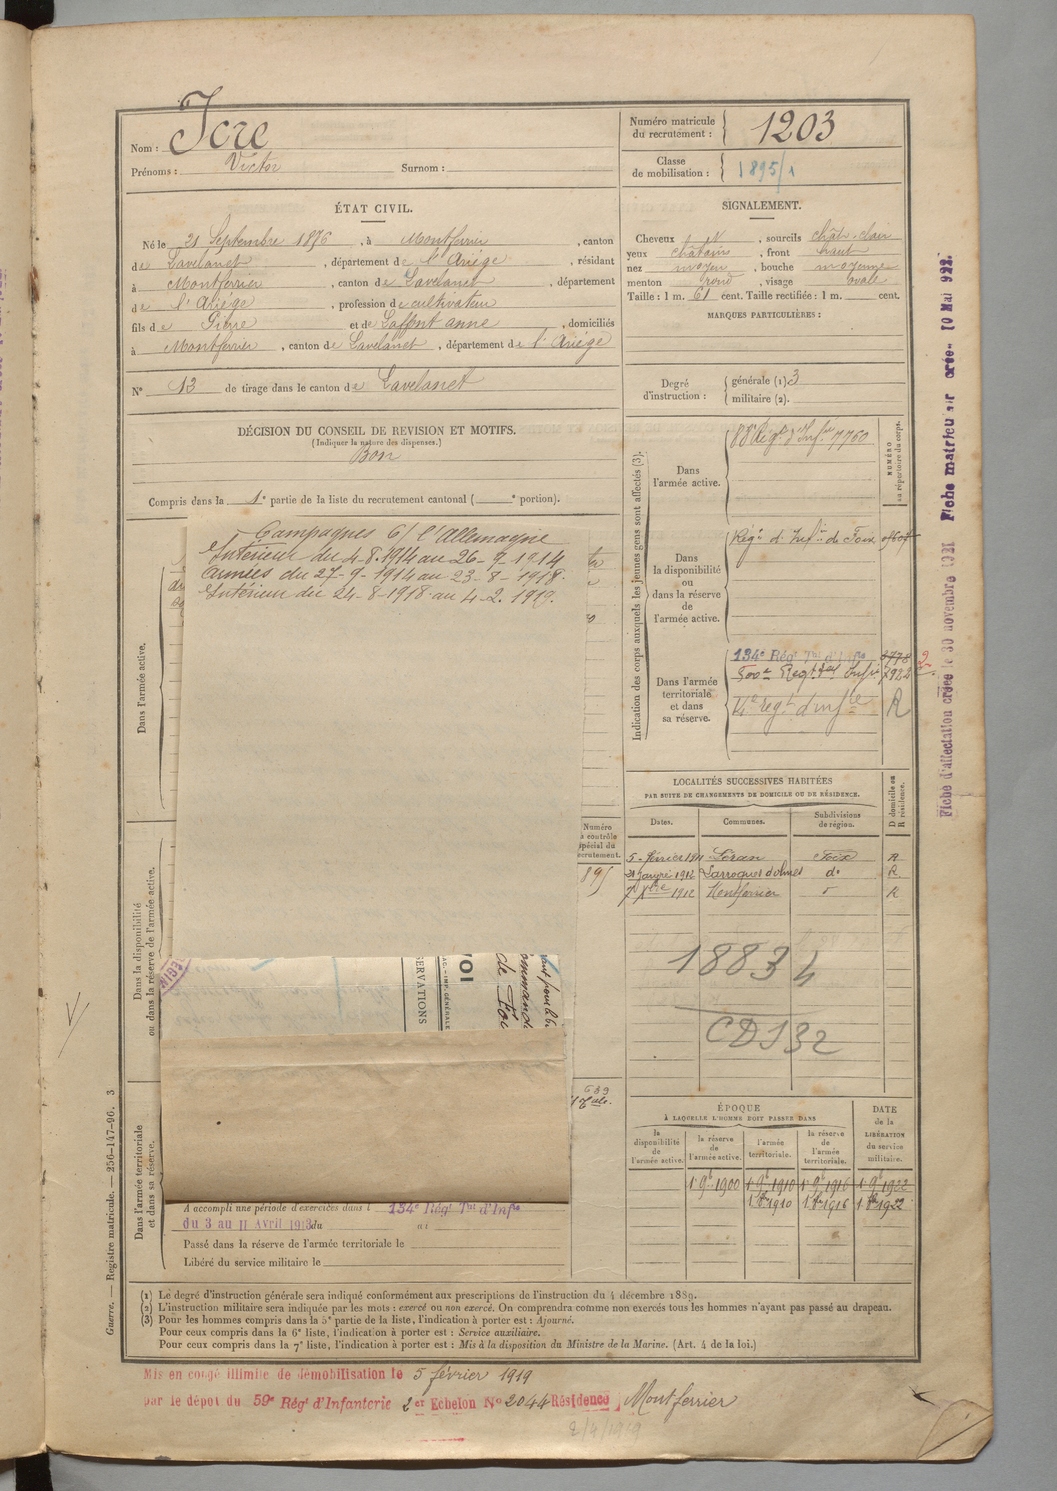 Nom : Icre
Prénoms : Victor Surnom :
Numéro matricule
du recrutement : 1203
Classe
de mobilisation : 1895/1
ÉTAT CIVIL.
Né le 21 Septembre 1876, à Montferrier, canton
de Lavelanet, département de l'Ariège, résidant
à Montferrier, canton de Lavelanet, département
de l'Ariège, profession de cultivateur
fils de Pierre et de Laffont anne, domiciliés
à Montferrier, canton de Lavelanet, département de l'Ariège
N° 13 de tirage dans le canton de Lavelanet
SIGNALEMENT.
Cheveux , sourcils chât. clair
yeux châtains, front haut
nez moyen, bouche moyenne
menton rond, visage ovale
Taille : 1 m. 61 cent. Taille rectifiée : 1 m. cent.
MARQUES PARTICULIÈRES :
Degré
d'instruction :
générale (1) 3
militaire (2).
DÉCISION DU CONSEIL DE REVISION ET MOTIFS.
(Indiquer la nature des dispenses.)
Bon
Compris dans la 1e partie de la liste du recrutement cantonal ( e portion).
Campagnes C/ l'Allemagne
Intérieur du 4-8-1914 au 26-9-1914
Armées du 27-9-1914 au 23-8-1918.
Intérieur du 24-8-1918 au 4-2-1919.
Dans l'armée active.
Dans la disponibilité
ou dans la réserve de l'armée active.
Dans l'armée territoriale
et dans sa réserve.
Indication des corps auxquels les jeunes gens sont affectés (3).
NUMÉRO
au répertoire du corps.
Dans
l'armée active.
88e Régt d'Infie 7760
Dans
la disponibilité
ou
dans la réserve
de
l'armée active.
Régt d'Infie de Foix
Dans l'armée
territoriale
et dans
sa réserve.
134e Régt Tal d'Infie 3778
500e Regt tal Infie 7922
14e regt d'infie R
2
LOCALITÉS SUCCESSIVES HABITÉES
PAR SUITE DE CHANGEMENTS DE DOMICILE OU DE RÉSIDENCE.
Dates. Communes. Subdivisions
de région.
D domicile ou
R résidence.
5 février 1911 Léran Foix R
21 janvier 1912 Larroque d'olmes do R
7 1912 Montferrier R
18834
CD132
Numéro
contrôle
spécial du
recrutement.
895
639
OBSERVATIONS
de Foix
A accompli une période d'exercices dans l 134e Régt Tal d'Infie
du 3 au 11 Avril 1913 du au
Passé dans la réserve de l'armée territoriale le
Libéré du service militaire le
ÉPOQUE
À LAQUELLE L'HOMME DOIT PASSER DANS
la
disponibilité
de
l'armée active.
la réserve
de
l'armée active.
l'armée
territoriale.
la réserve
de
l'armée
territoriale.
DATE
de la
LIBÉRATION
du service
militaire.
1 9bre 1900 1 9bre 1910 1 9bre 1916 1 9bre 1922
1 8bre 1910 1 8bre 1916 1 8bre 1922
(1) Le degré d'instruction générale sera indiqué conformément aux prescriptions de l'instruction du 4 décembre 1889.
(2) L'instruction militaire sera indiquée par les mots : exercé ou non exercé. On comprendra comme non exercés tous les hommes n'ayant pas passé au drapeau.
(3) Pour les hommes compris dans la 5e partie de la liste, l'indication à porter est : Ajourné.
Pour ceux compris dans la 6e liste, l'indication à porter est : Service auxiliaire.
Pour ceux compris dans la 7e liste, l'indication à porter est : Mis à la disposition du Ministre de la Marine. (Art. 4 de la loi.)
Mis en congé illimité de démobilisation le 5 février 1919
par le dépot du 59e Régt d'Infanterie 2er Echelon N° 2044 Résidence Montferrier
2/4/1919
Guerre. — Registre matricule. — 256-147-96. 3
Fiche d'affectation créée le 30 novembre 1921 Fiche matricule créée 10 Mai 1922.